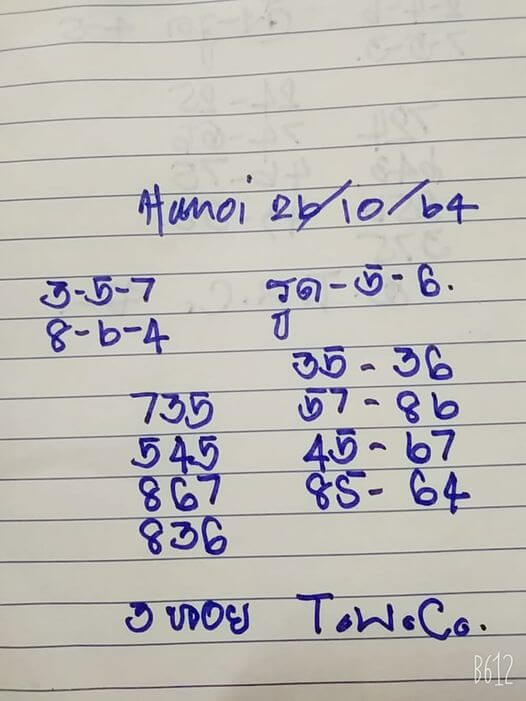 Hanoi 26/10/64
3-5-7 รูด-5-6.
8-6-4
35 - 36
735 57 - 86
545 45 - 67
867 85 - 64
836
3 หอย T.W.Co.
B612